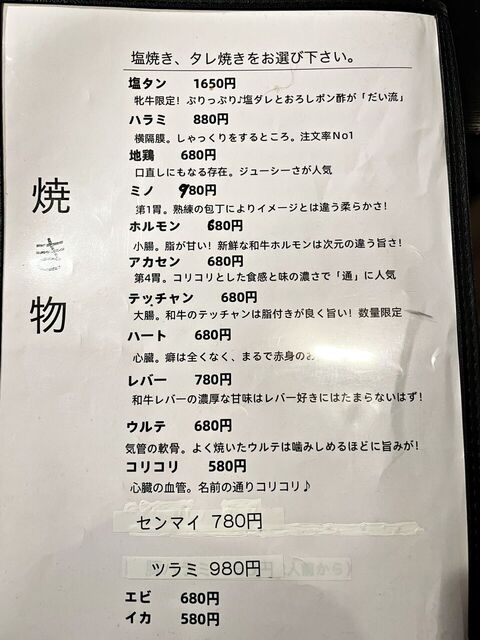 焼き物
塩焼き、タレ焼きをお選び下さい。
塩タン 1650円
牝牛限定！ぷりっぷり♪塩ダレとおろしポン酢が「だい流」
ハラミ 880円
横隔膜。しゃっくりをするところ。注文率No1
地鶏 680円
口直しにもなる存在。ジューシーさが人気
ミノ 980円
第1胃。熟練の包丁によりイメージとは違う柔らかさ！
ホルモン 680円
小腸。脂が甘い！新鮮な和牛ホルモンは次元の違う旨さ！
アカセン 680円
第4胃。コリコリとした食感と味の濃さで「通」に人気
テッチャン 680円
大腸。和牛のテッチャンは脂付きが良く旨い！数量限定
ハート 680円
心臓。癖は全くなく、まるで赤身のお
レバー 780円
和牛レバーの濃厚な甘味はレバー好きにはたまらないはず！
ウルテ 680円
気管の軟骨。よく焼いたウルテは噛みしめるほどに旨みが！
コリコリ 580円
心臓の血管。名前の通りコリコリ♪
センマイ 780円
ツラミ 980円 人前から）
エビ 680円
イカ 580円